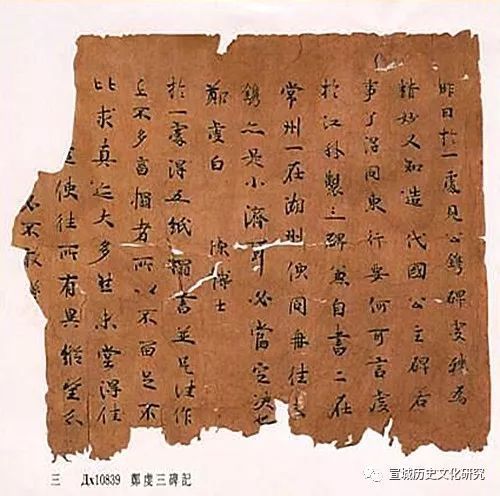 昨日於一處見公鐫碑稱為
精妙又知造代國公主碑若
事了得間東行要何可言虔
於江外製三碑兼自書二在
常州一在湖州便同舟往
鐫亦是小濟耳必當定決也
鄭虔白 陳博士
於一處得五紙言並是注作
不多者所以不留足不
比求真迹大多未嘗得住
使往所有異縱望不
不敢
三 Дx10839 鄭虔三碑記
宣城历史文化研究